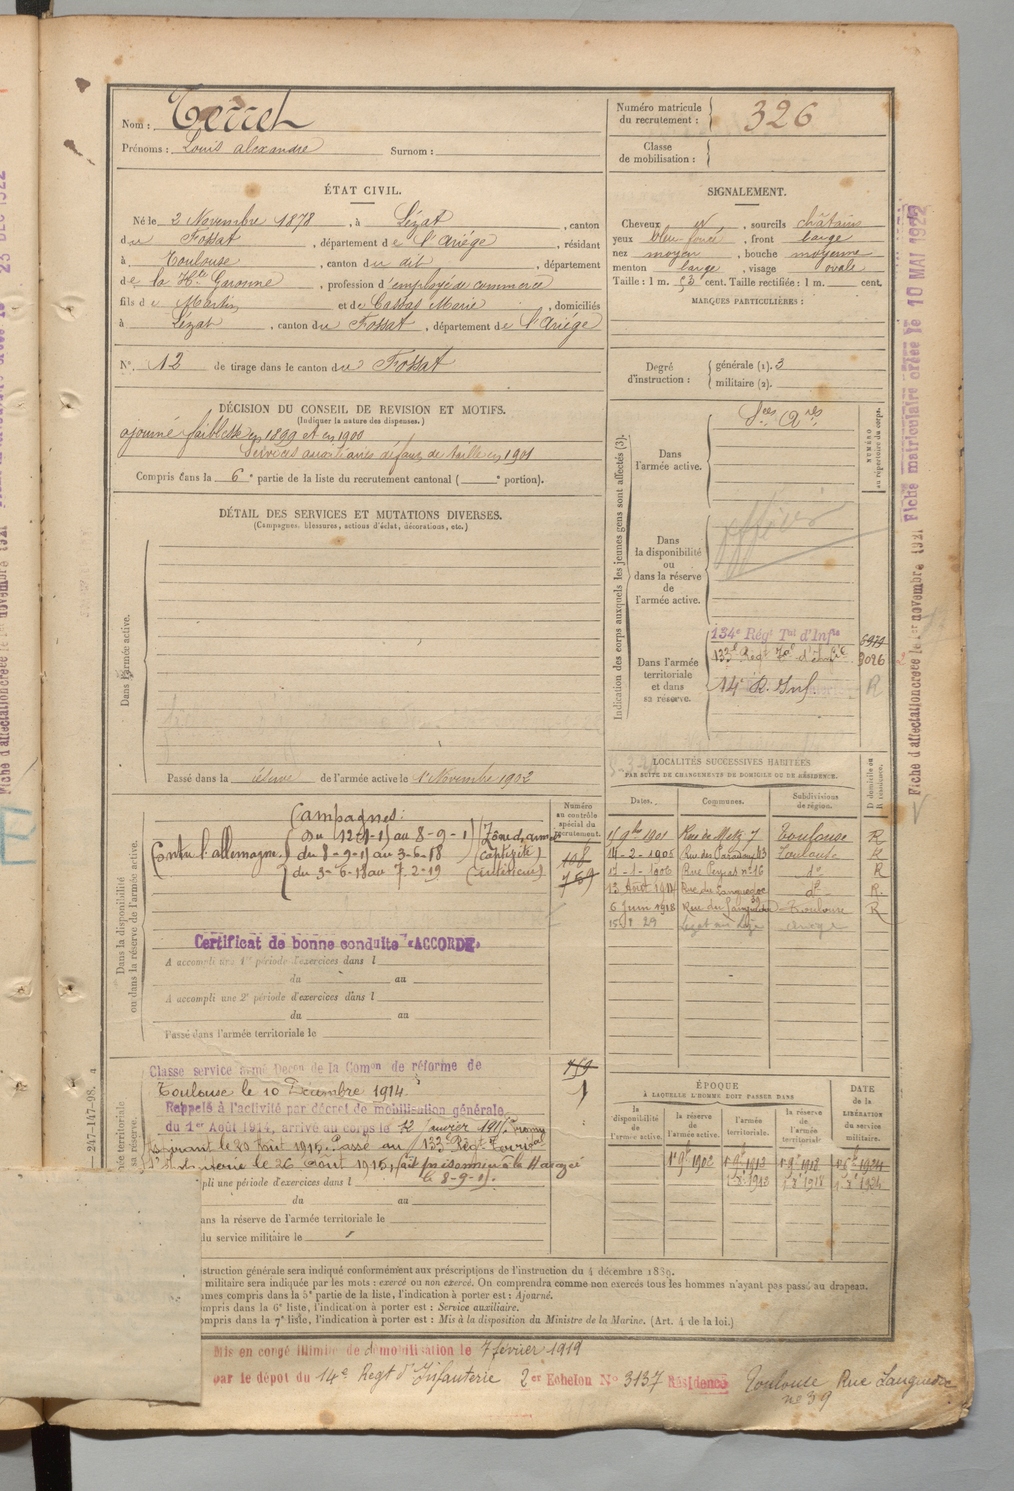 Nom : Terret
Prénoms : Louis alexandre Surnom :
Numéro matricule du recrutement : 326
Classe de mobilisation :
ÉTAT CIVIL.
Né le 2 Novembre 1878, à Lézat, canton
du Fossat, département de l'Ariége, résidant
à Toulouse, canton du dit, département
de la Hte Garonne, profession d'employé de commerce
fils de Martin et de Cassas Marie, domiciliés
à Lézat, canton du Fossat, département de l'Ariége
N° 12 de tirage dans le canton du Fossat
SIGNALEMENT.
Cheveux et, sourcils châtains
yeux bleu foncé, front large
nez moyen, bouche moyenne
menton large, visage ovale
Taille : 1 m. 53 cent. Taille rectifiée : 1 m. cent.
MARQUES PARTICULIÈRES :
Degré d'instruction : générale (1). 3
militaire (2).
DÉCISION DU CONSEIL DE REVISION ET MOTIFS.
(Indiquer la nature des dispenses.)
ajourné faiblesse en 1899 et en 1900
Services auxiliaires défaut de taille en 1901
Compris dans la 6e partie de la liste du recrutement cantonal ( e portion).
DÉTAIL DES SERVICES ET MUTATIONS DIVERSES.
(Campagnes, blessures, actions d'éclat, décorations, etc.)
Dans l'armée active.
Passé dans la réserve de l'armée active le 1er Novembre 1902
Indication des corps auxquels les jeunes gens sont affectés (3).
NUMÉRO au répertoire du corps.
Dans l'armée active.
Ses Axres
Dans la disponibilité ou dans la réserve de l'armée active.
Dans l'armée territoriale et dans sa réserve.
134e Régt Tal d'Infie
133e Régt Tal d'Infie 9096
14e R. Inf R
LOCALITÉS SUCCESSIVES HABITÉES
PAR SUITE DE CHANGEMENTS DE DOMICILE OU DE RÉSIDENCE.
Dates. Communes. Subdivisions de région. D domicile ou R résidence.
15 9bre 1901 Rue de Metz 7 Toulouse R
14-2-1905 Rue des Paradoux 13 Toulouse R
17-1-1906 Rue Peyras n° 16 do R
13 Août 1914 Rue du Languedoc do R.
6 Juin 1918 Rue du Languedoc 39 Toulouse R
Dans la disponibilité ou dans la réserve de l'armée active.
Numéro au contrôle spécial du recrutement.
Campagnes :
Contre l'allemagne
du 8-9-1 au 3-6-18 (captivité)
du 3-6-18 au 7-2-19 (intérieur)
108
759
Certificat de bonne conduite "ACCORDÉ"
A accompli une 1re période d'exercices dans l
du au
A accompli une 2e période d'exercices dans l
du au
Passé dans l'armée territoriale le
Classé service armé Décon de la Comon de réforme de
Toulouse le 10 Décembre 1914
Rappelé à l'activité par décret de mobilisation générale
du 1er Août 1914, arrivé au corps le
Passé au 133e Régt Territorial
d'Infanterie le 26 Août 1916, fait prisonnier
le 8-9-1
759
pli une période d'exercices dans l
du au
ans la réserve de l'armée territoriale le
du service militaire le
ÉPOQUE
À LAQUELLE L'HOMME DOIT PASSER DANS
la disponibilité de l'armée active. la réserve de l'armée active. l'armée territoriale. la réserve de l'armée territoriale
DATE de la LIBÉRATION du service militaire.
1er 9bre 1902 1er 9bre 1912 1er 9bre 1918 1er 9bre 1924
1er 8bre 1912 1er 8bre 1918 1er 8bre 1924
struction générale sera indiqué conformément aux préscriptions de l'instruction du 4 décembre 1889.
militaire sera indiquée par les mots : exercé ou non exercé. On comprendra comme non exercés tous les hommes n'ayant pas passé au drapeau.
mmes compris dans la 5e partie de la liste, l'indication à porter est : Ajourné.
ompris dans la 6e liste, l'indication à porter est : Service auxiliaire.
ompris dans la 7e liste, l'indication à porter est : Mis à la disposition du Ministre de la Marine. (Art. 4 de la loi.)
Mis en congé illimité de démobilisation le 7 février 1919
par le dépôt du 14e Regt d'Infanterie 2er Echelon N° 3137 Résidence Toulouse Rue Languedoc
n° 39
Fiche matriculaire créée le 10 MAI 1922
Fiche d'affectation créée le 1er novembre 1921
247-147-98.